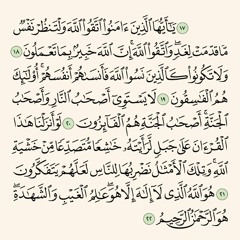 ١٧ يَٰٓأَيُّهَا ٱلَّذِينَ ءَامَنُوا۟ ٱتَّقُوا۟ ٱللَّهَ وَلْتَنظُرْ نَفْسٌ
مَّا قَدَّمَتْ لِغَدٍ وَٱتَّقُوا۟ ٱللَّهَ إِنَّ ٱللَّهَ خَبِيرٌۢ بِمَا تَعْمَلُونَ ١٨
وَلَا تَكُونُوا۟ كَٱلَّذِينَ نَسُوا۟ ٱللَّهَ فَأَنسَىٰهُمْ أَنفُسَهُمْ أُو۟لَٰٓئِكَ
هُمُ ٱلْفَٰسِقُونَ ١٩ لَا يَسْتَوِىٓ أَصْحَٰبُ ٱلنَّارِ وَأَصْحَٰبُ
ٱلْجَنَّةِ أَصْحَٰبُ ٱلْجَنَّةِ هُمُ ٱلْفَآئِزُونَ ٢٠ لَوْ أَنزَلْنَا هَٰذَا
ٱلْقُرْءَانَ عَلَىٰ جَبَلٍ لَّرَأَيْتَهُۥ خَٰشِعًا مُّتَصَدِّعًا مِّنْ خَشْيَةِ
ٱللَّهِ وَتِلْكَ ٱلْأَمْثَٰلُ نَضْرِبُهَا لِلنَّاسِ لَعَلَّهُمْ يَتَفَكَّرُونَ
٢١ هُوَ ٱللَّهُ ٱلَّذِى لَآ إِلَٰهَ إِلَّا هُوَ عَٰلِمُ ٱلْغَيْبِ وَٱلشَّهَٰدَةِ
هُوَ ٱلرَّحْمَٰنُ ٱلرَّحِيمُ ٢٢